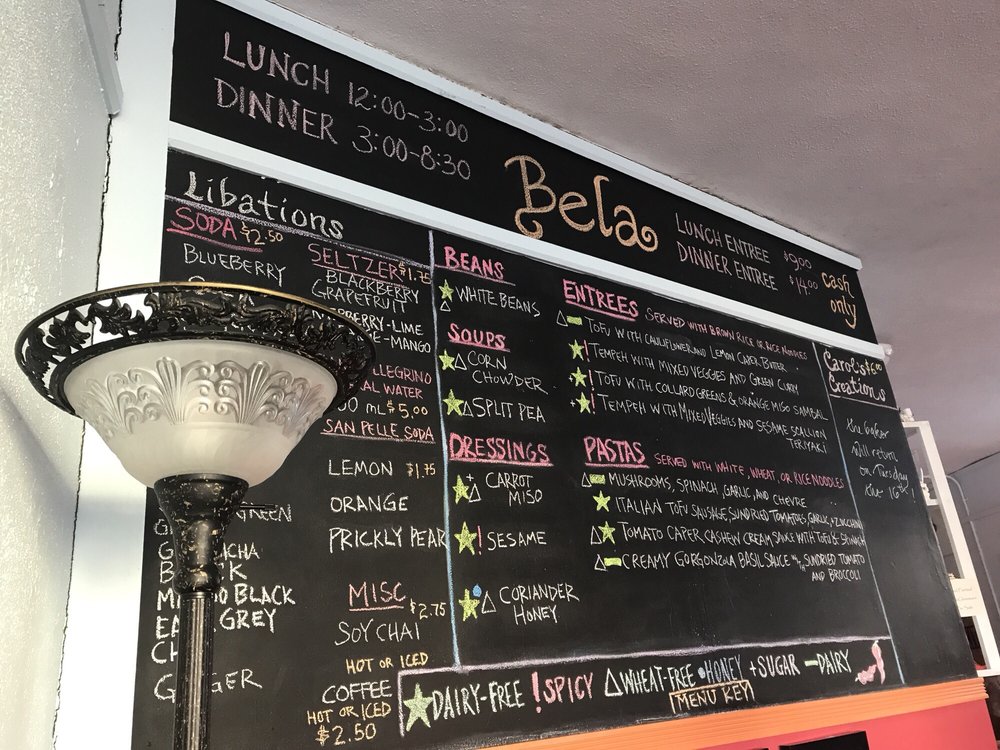 LUNCH 12:00-3:00
DINNER 3:00-8:30
Bela
LUNCH ENTREE $9.00
DINNER ENTREE $14.00
cash only
Libations
SODA $2.50
BLUEBERRY
SELTZER $1.75
BLACKBERRY
GRAPEFRUIT
-LIME
-MANGO
WATER
$5.00
SAN PELLE SODA
LEMON $1.75
ORANGE
PRICKLY PEAR
GREEN
BLACK
GREY
MISC
$2.75
SOY CHAI
HOT OR ICED
COFFEE
HOT OR ICED
$2.50
BEANS
★ △ WHITE BEANS
SOUPS
★△ CORN
CHOWDER
★△ SPLIT PEA
DRESSINGS
★ + △ CARROT
MISO
★! SESAME
★ • △ CORIANDER
HONEY
ENTREES SERVED WITH BROWN RICE OR RICE NOODLES
△ - TOFU WITH CAULIFLOWER AND LEMON CAPER BUTTER
★! TEMPEH WITH MIXED VEGGIES AND GREEN CURRY
+★! TOFU WITH COLLARD GREENS & ORANGE MISO SAMBAL
+★! TEMPEH WITH MIXED VEGGIES AND SESAME SCALLION
TERIYAKI
PASTAS SERVED WITH WHITE, WHEAT, OR RICE NOODLES
△ - MUSHROOMS, SPINACH, GARLIC, AND CHEVRE
★ ITALIAN TOFU SAUSAGE, SUNDRIED TOMATOES, GARLIC, + ZUCCHINI
△★ TOMATO CAPER CASHEW CREAM SAUCE WITH TOFU & SPINACH
△ - CREAMY GORGONZOLA BASIL SAUCE W/ SUNDRIED TOMATO
AND BROCCOLI
Carol's
Creations
The baker
will return
on Tuesday
★DAIRY-FREE !SPICY △WHEAT-FREE •HONEY +SUGAR -DAIRY
MENU KEY